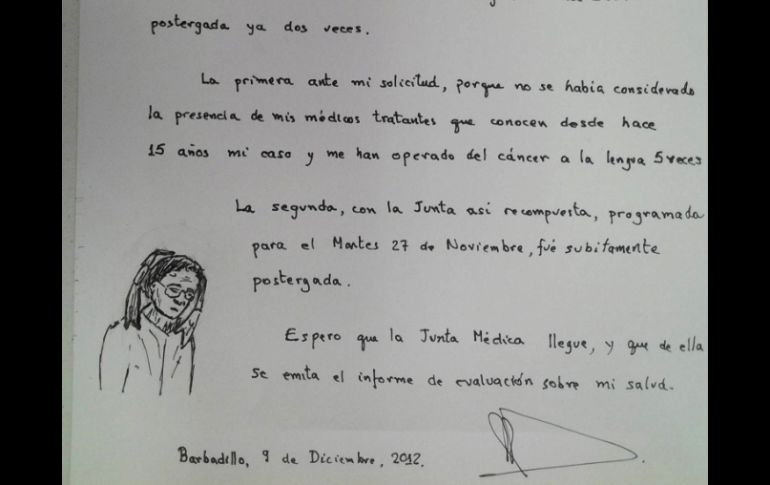 postergada ya dos veces.
La primera ante mi solicitud, porque no se había considerado
la presencia de mis médicos tratantes que conocen desde hace
15 años mi caso y me han operado del cáncer a la lengua 5 veces
La segunda, con la Junta así recompuesta, programada
para el Martes 27 de Noviembre, fué subitamente
postergada.
Espero que la Junta Médica llegue, y que de ella
se emita el informe de evaluación sobre mi salud.
Barbadillo, 9 de Diciembre, 2012.